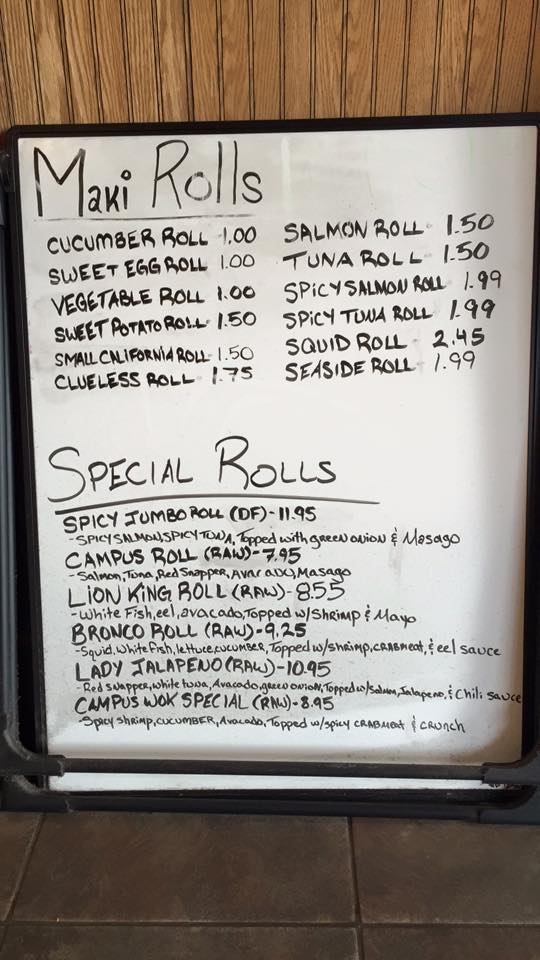 Maki Rolls
CUCUMBER ROLL 1.00
SWEET EGG ROLL 1.00
VEGETABLE ROLL 1.00
SWEET POTATO ROLL - 1.50
SMALL CALIFORNIA ROLL - 1.50
CLUELESS ROLL - 1.75
SALMON ROLL - 1.50
TUNA ROLL - 1.50
SPICY SALMON ROLL 1.99
SPICY TUNA ROLL 1.99
SQUID ROLL - 2.45
SEASIDE ROLL - 1.99
SPECIAL ROLLS
SPICY JUMBO ROLL (DF) - 11.95
- SPICY SALMON, SPICY TUNA, Topped with green onion & Masago
CAMPUS ROLL (RAW) - 7.95
- Salmon, Tuna, Red Snapper, Masago
LION KING ROLL (RAW) - 8.55
- White Fish, eel, avocado, Topped w/ Shrimp & Mayo
BRONCO ROLL (RAW) - 9.25
- Squid, White Fish, lettuce, CUCUMBER, Topped w/shrimp, CRABMEAT, & eel sauce
LADY JALAPENO (RAW) - 10.95
- Red snapper, white tuna, Avacado, green onion, Topped w/ Salmon, Jalapeno, & Chili sauce
CAMPUS WOK SPECIAL (RAW) - 8.95
- Spicy shrimp, CUCUMBER, Avocado, Topped w/ spicy CRABMEAT & crunch